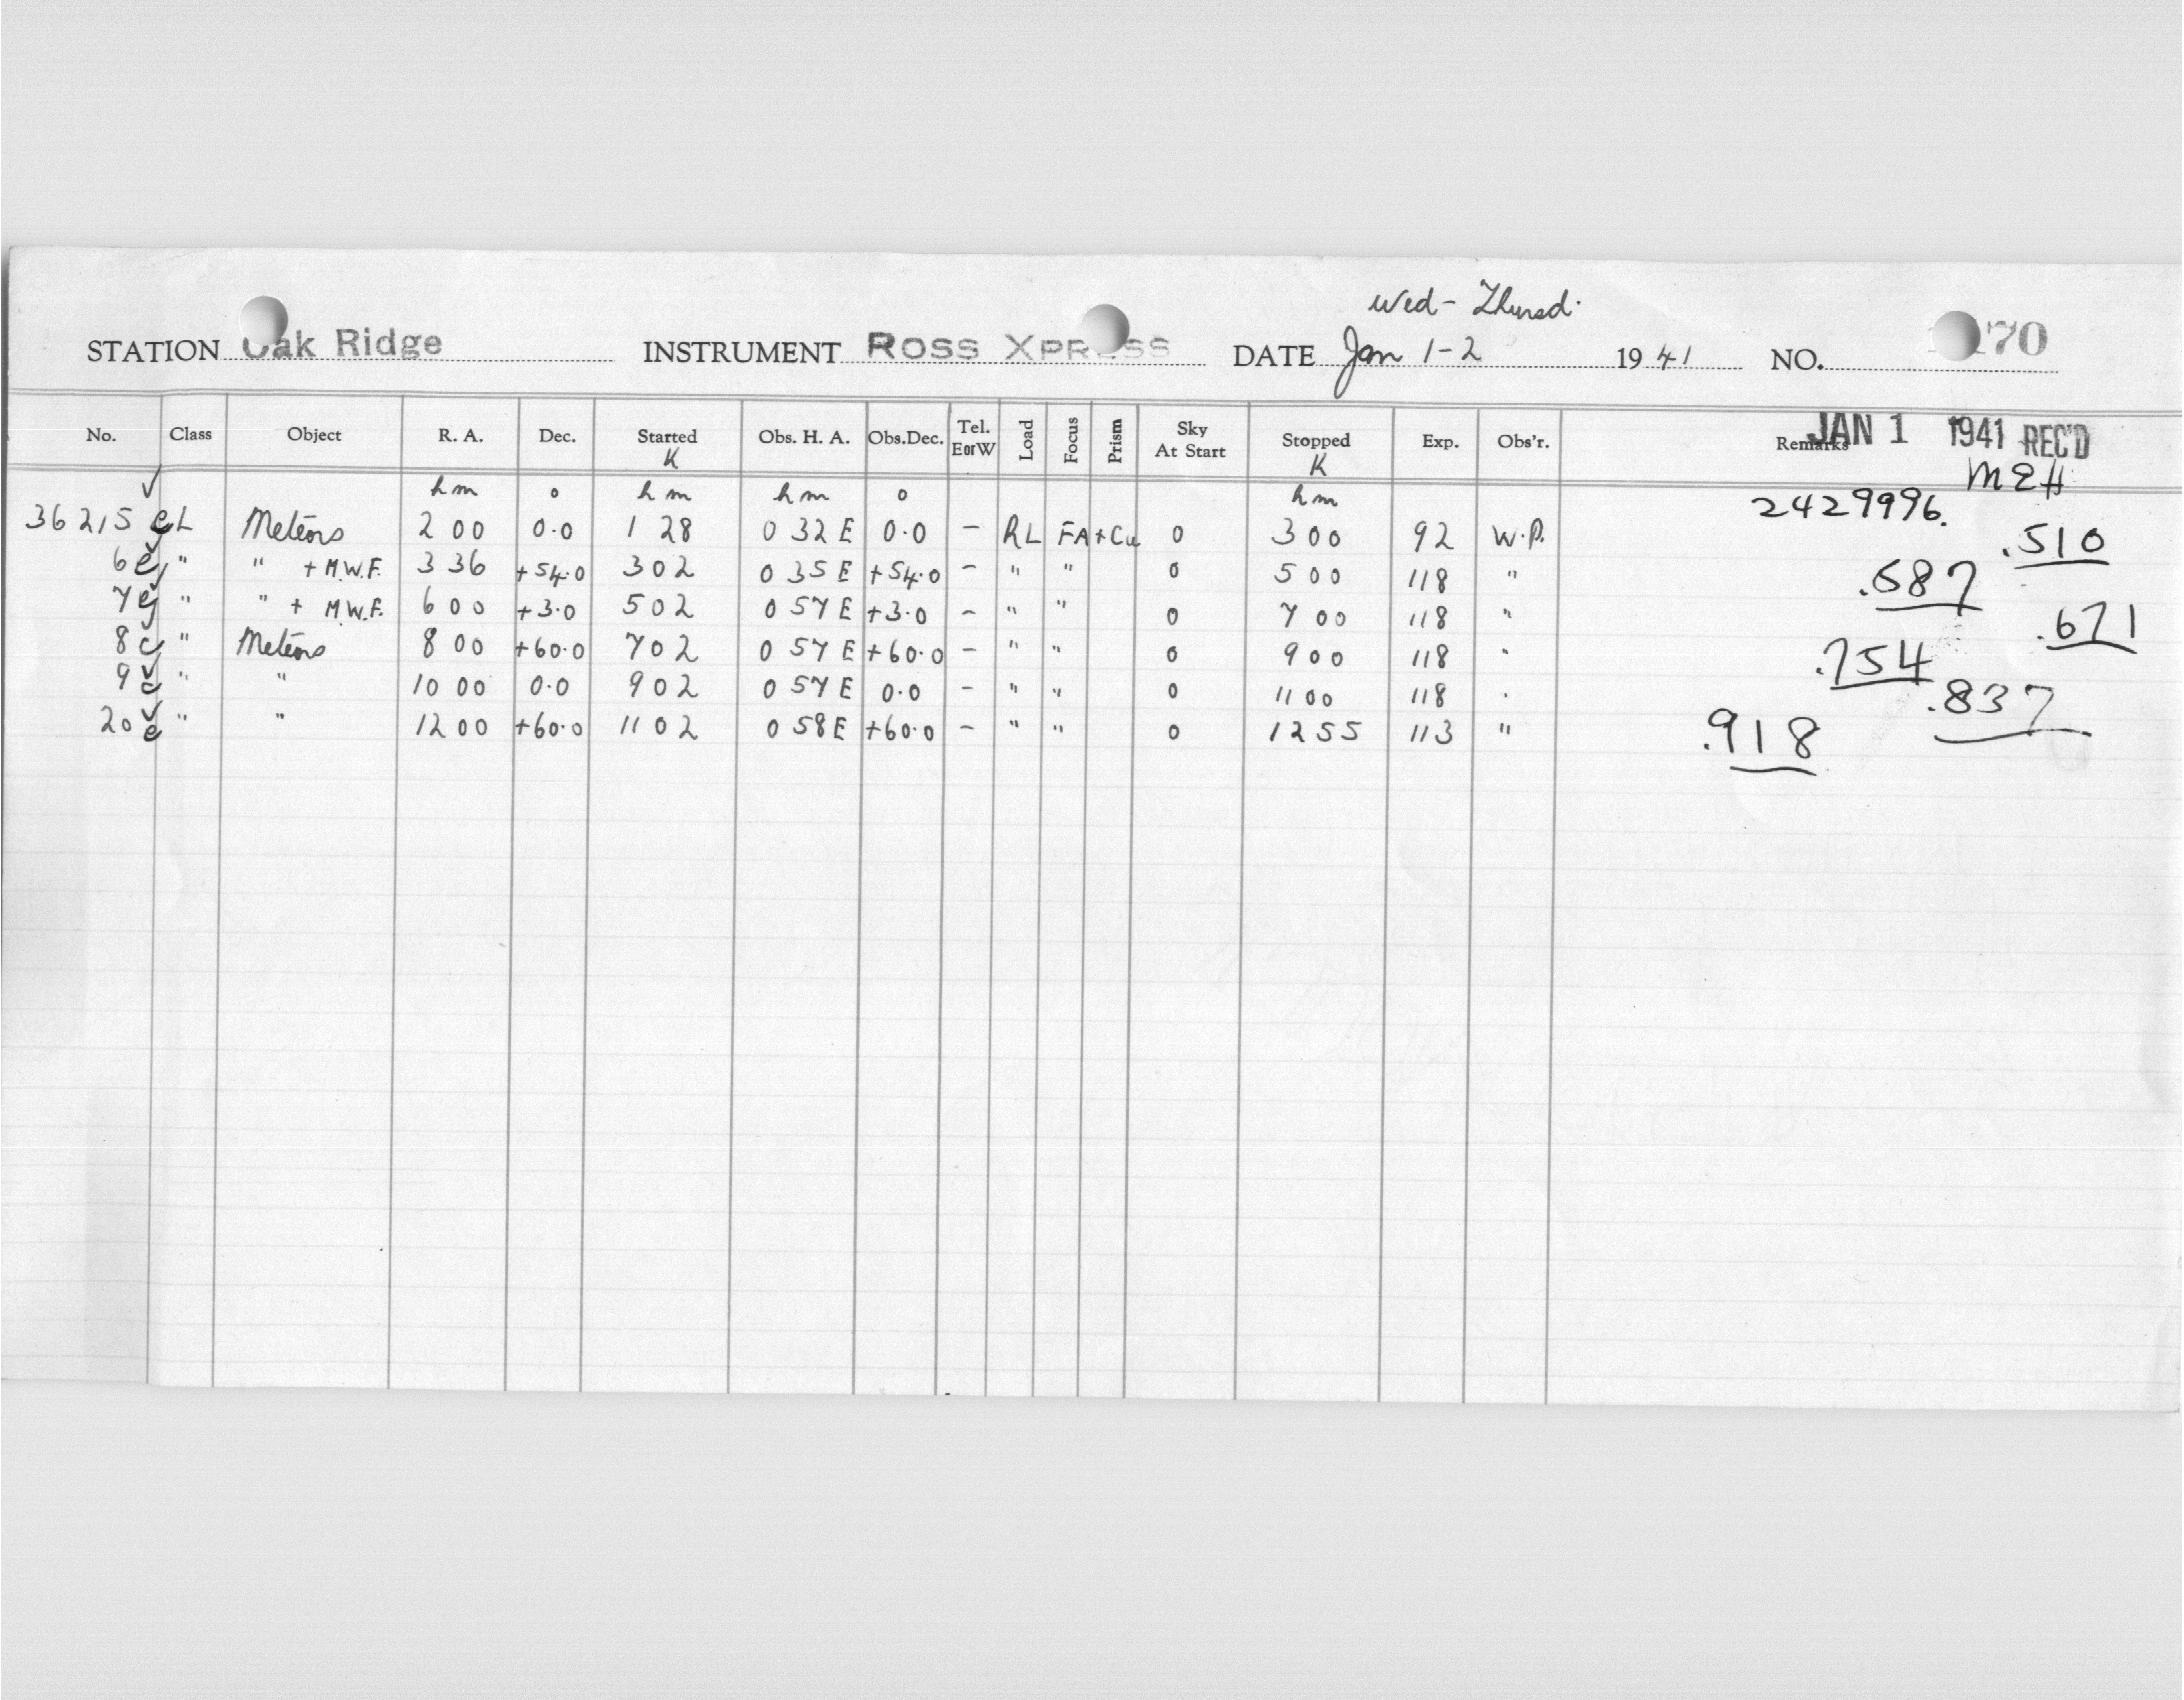 Wed - Thursd.
STATION Oak Ridge INSTRUMENT ROSS XPRESS DATE Jan 1-2 1941 NO. 70
No. Class Object R. A. Dec. Started Obs. H. A. Obs.Dec. Tel. EorW Load Focus Prism Sky At Start Stopped Exp. Obs'r. Remarks JAN 1 1941 REC'D
K K
MEH
h m o h m h m o h m
2429996.
36215 e L Meteors 2 00 0.0 1 28 0 32 E 0.0 - RL FA+Cu 0 3 00 92 W.P. .510
6 e " " + M.W.F. 3 36 +54.0 3 02 0 35 E +54.0 - " " 0 5 00 118 " .587
7 e " " + M.W.F. 6 00 +3.0 5 02 0 57 E +3.0 - " " 0 7 00 118 " .671
8 e " Meteors 8 00 +60.0 7 02 0 57 E +60.0 - " " 0 9 00 118 " .754
9 e " " 10 00 0.0 9 02 0 57 E 0.0 - " " 0 11 00 118 " .837
20 e " " 12 00 +60.0 11 02 0 58 E +60.0 - " " 0 12 55 113 " .918